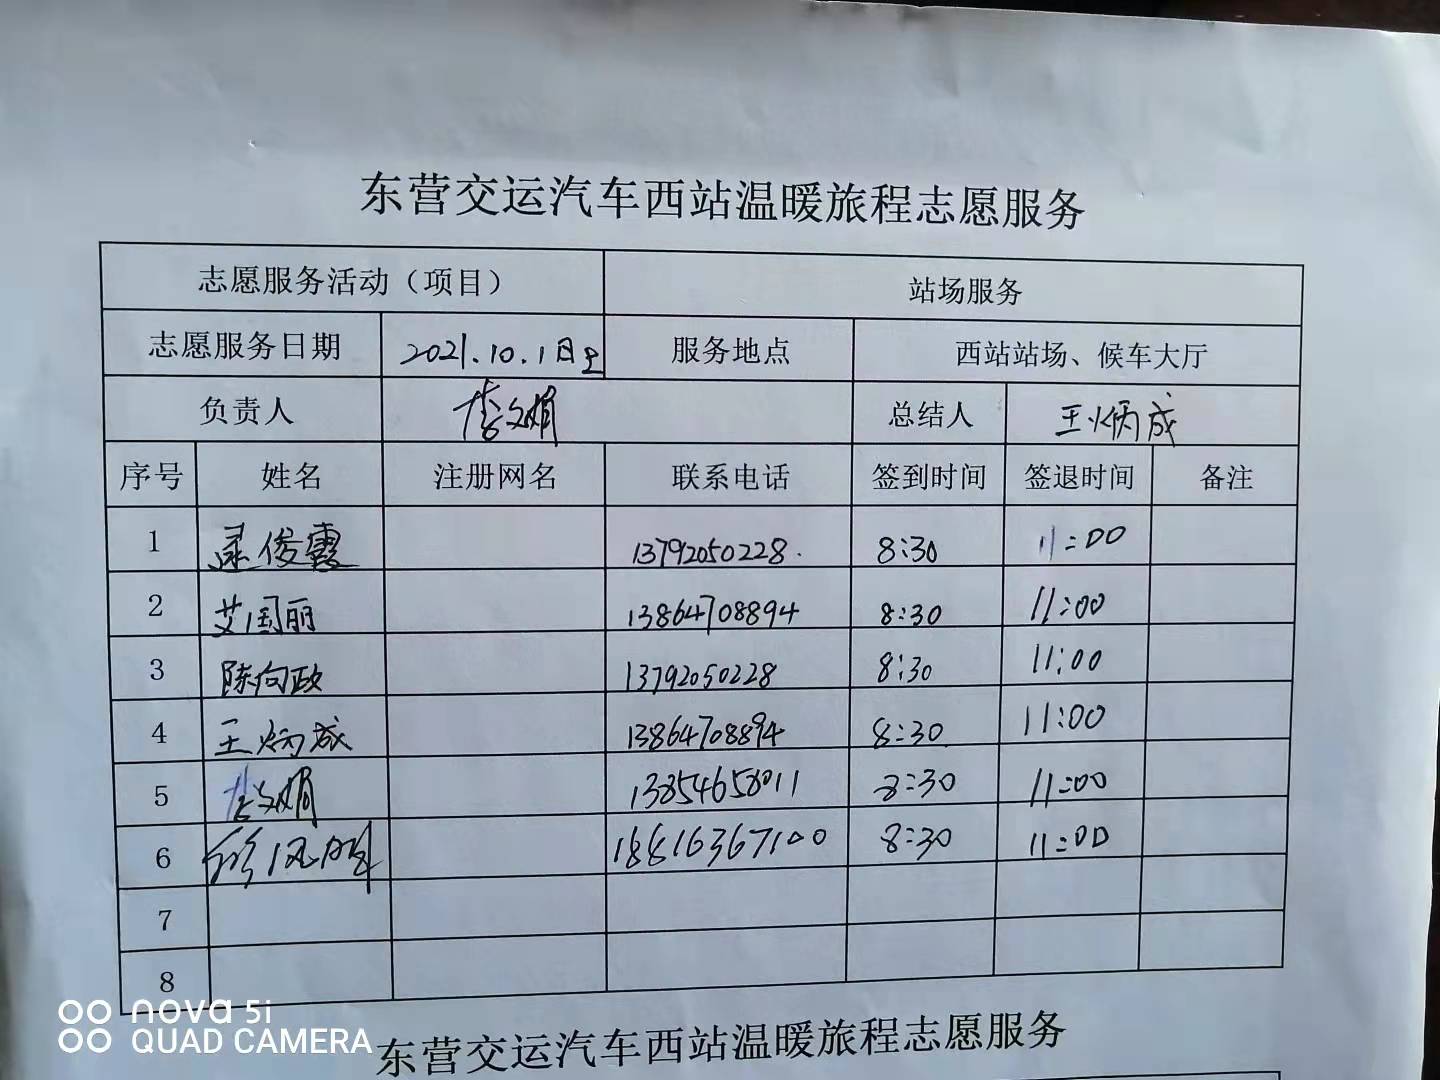 东营交运汽车西站温暖旅程志愿服务
志愿服务活动（项目） 站场服务
志愿服务日期 2021.10.1日 服务地点 西站站场、候车大厅
负责人 李文娟 总结人 王炳成
序号 姓名 注册网名 联系电话 签到时间 签退时间 备注
1 俊霞 13792050228. 8:30 11:00
2 艾国丽 13864708894 8:30 11:00
3 陈向政 13792050228 8:30 11:00
4 王炳成 13864708894 8:30 11:00
5 李文娟 13854658011 8:30 11:00
6 18816367100 8:30 11:00
7
8
nova 5i
QUAD CAMERA
东营交运汽车西站温暖旅程志愿服务